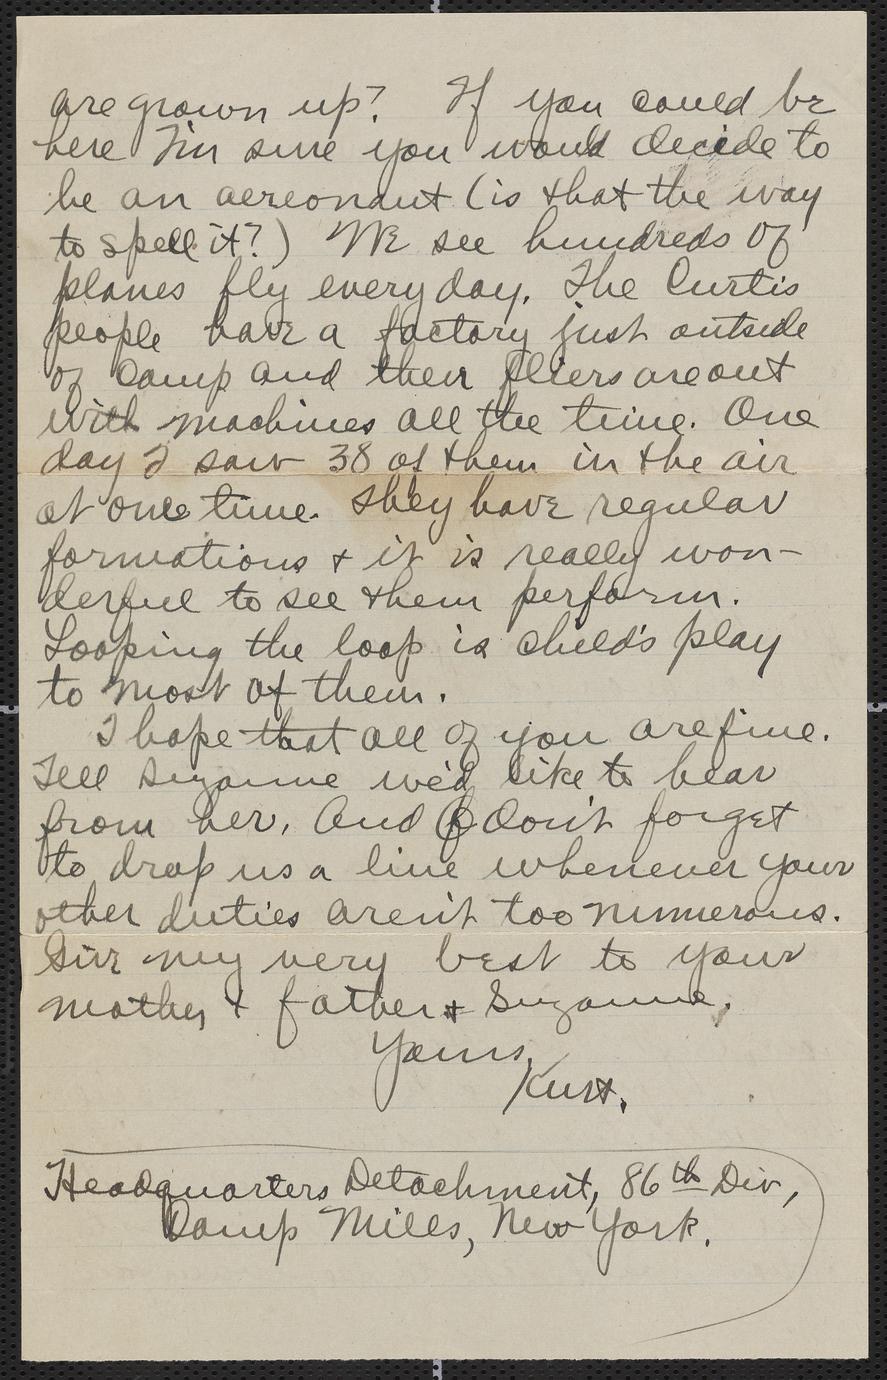 are grown up? If you could be
here I'm sure you would decide to
be an aereonaut (is that the way
to spell it?) We see hundreds of
planes fly every day. The Curtis
people have a factory just outside
of Camp and their fliers are out
with machines all the time. One
day I saw 38 of them in the air
at one time. They have regular
formations & it is really won-
derful to see them perform.
Looping the loop is child's play
to most of them.
I hope that all of you are fine.
Tell Suzanne we'd like to hear
from her. And don't forget
to drop us a line whenever your
other duties aren't too numerous.
Give my very best to your
mother & father & Suzanne.
Yours,
Kurt.
Headquarters Detachment, 86th Div,
Camp Mills, New York.